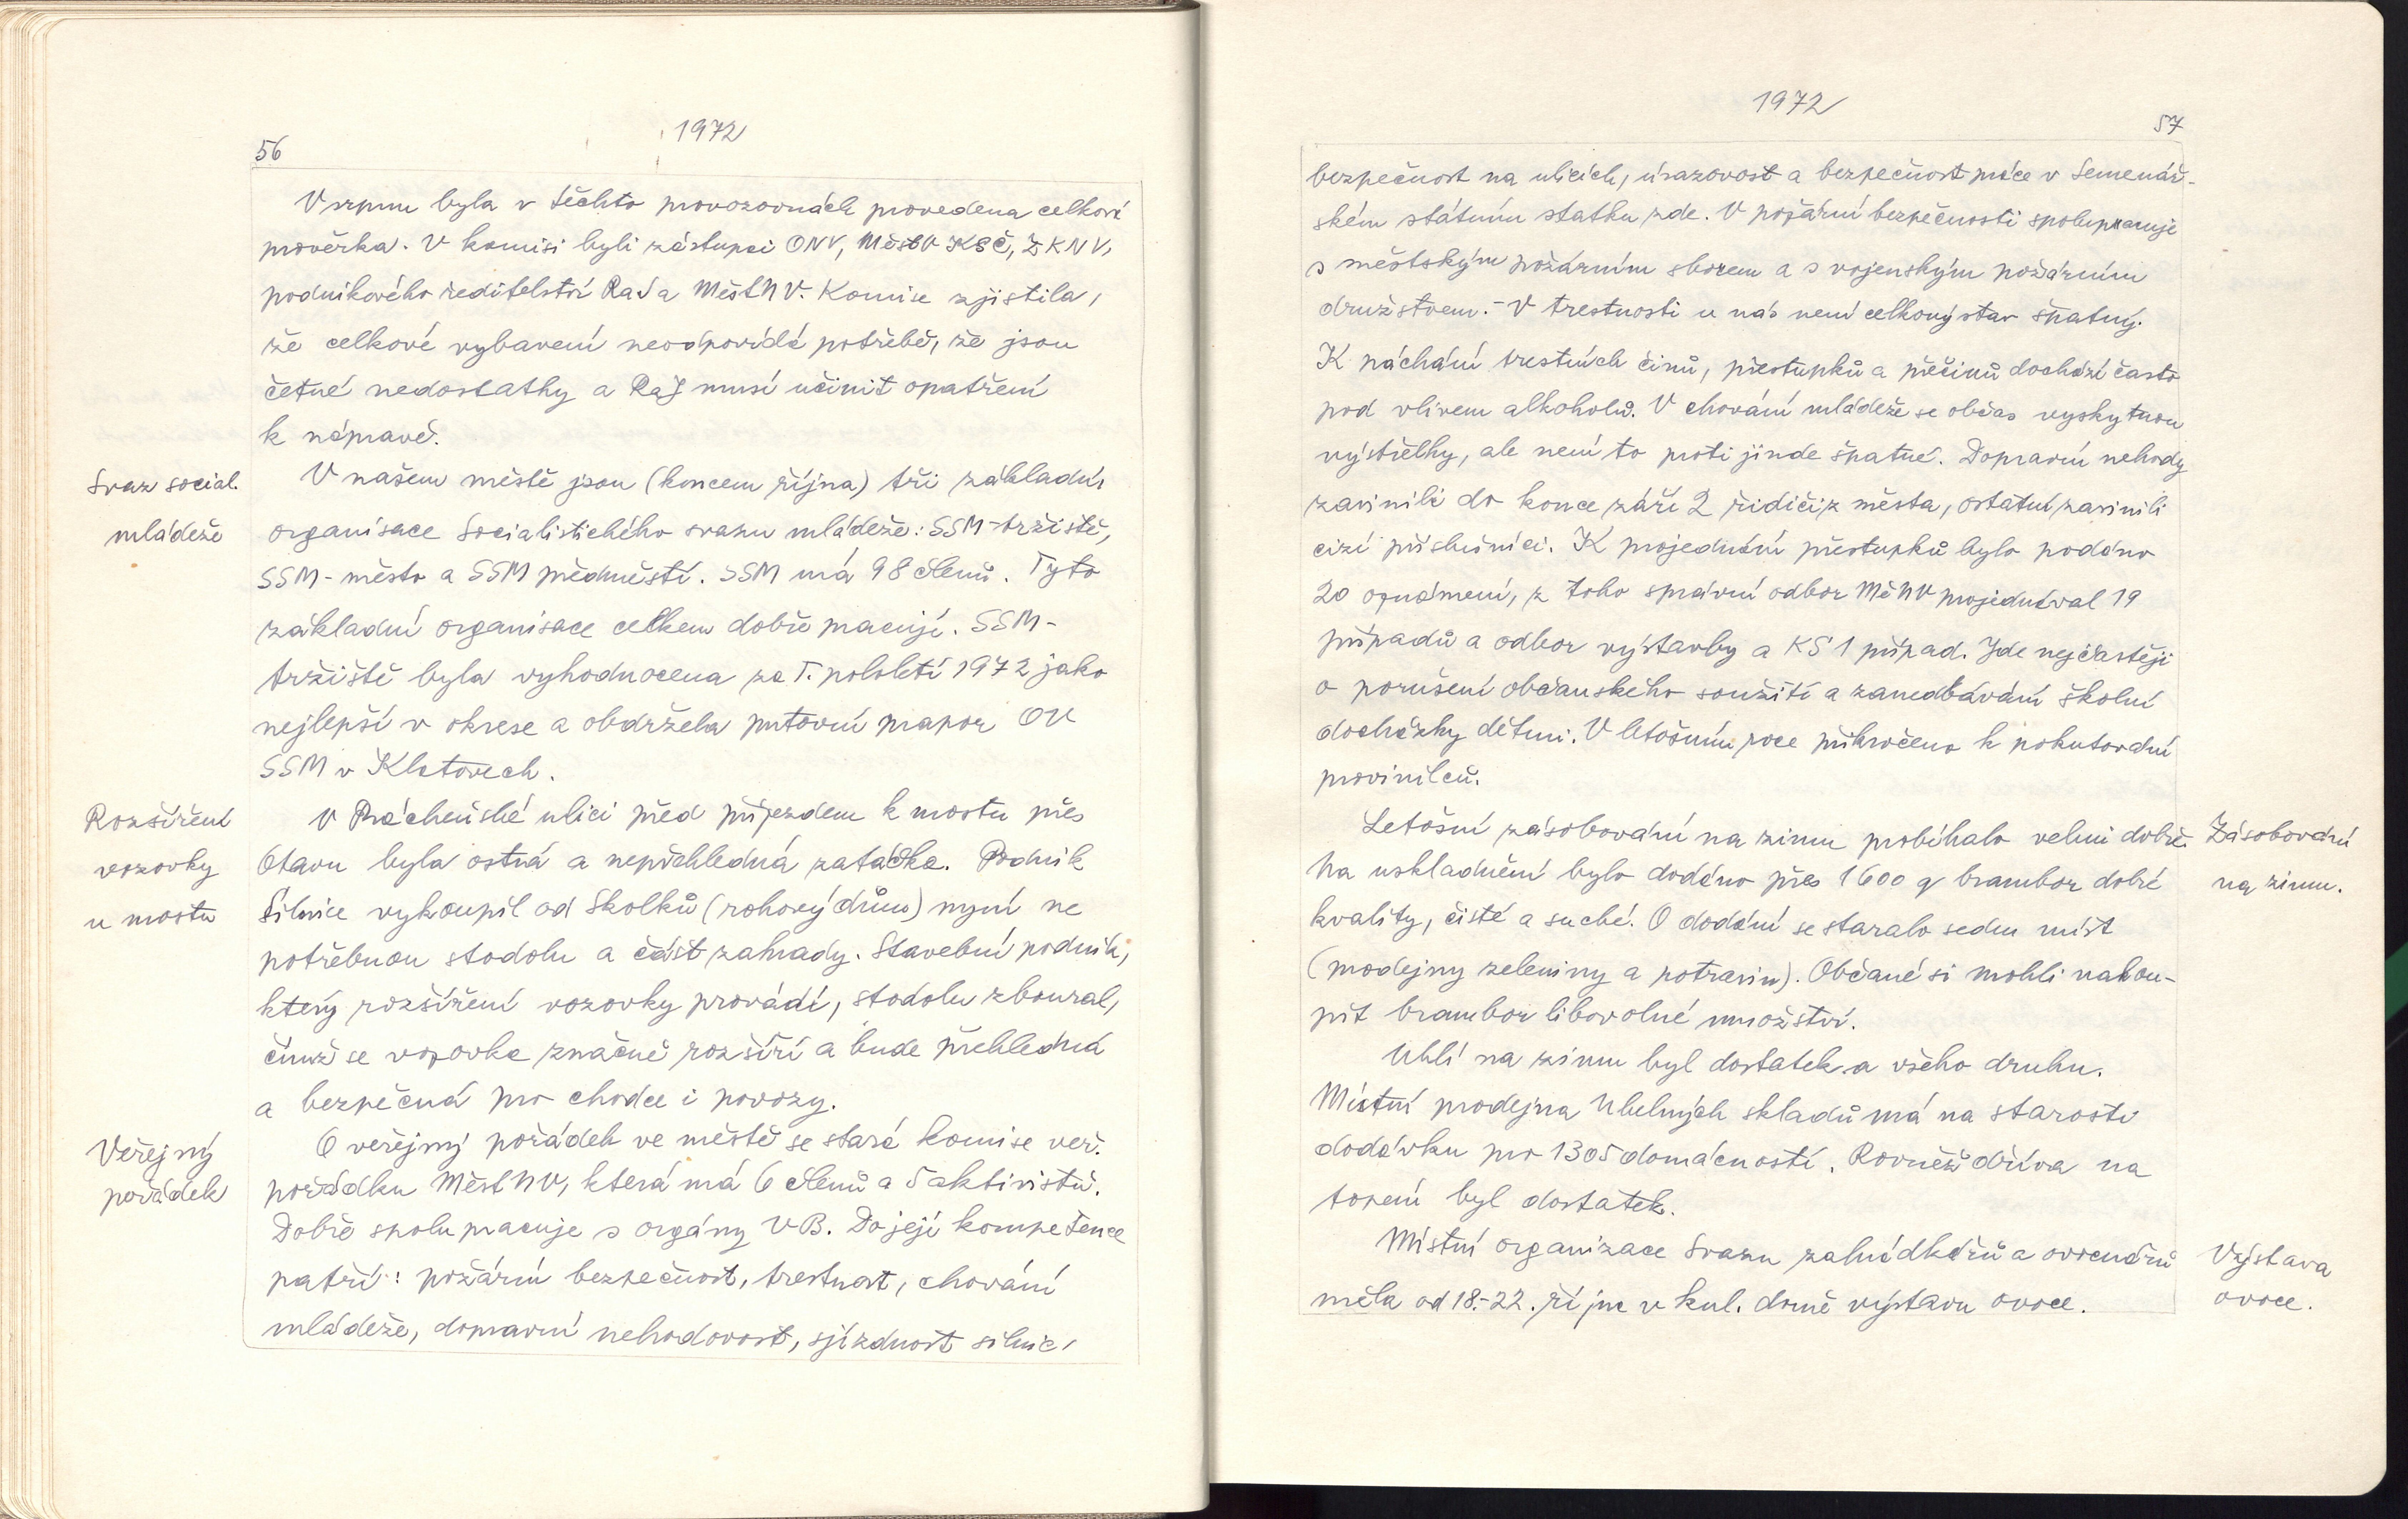 1972
56
V srpnu byla v těchto provozovnách provedena celková
prověrka. V komisi byli zástupci ONV, MěstV KSČ, ZKNV,
podnikového ředitelství RaJ a MěstNV. Komise zjistila,
že celkové vybavení neodpovídá potřebě, že jsou
četné nedostatky a RaJ musí učinit opatření
k nápravě.
Svaz social.
mládeže
V našem městě jsou (koncem října) tři základní
organisace Socialistického svazu mládeže: SSM-tržiště,
SSM-město a SSM předměstí. SSM má 98 členů. Tyto
základní organisace celkem dobře pracují. SSM-
tržiště byla vyhodnocena za I. pololetí 1972 jako
nejlepší v okrese a obdržela putovní prapor OV
SSM v Klatovech.
Rozšíření
vozovky
u mostu
V Prácheňské ulici před příjezdem k mostu přes
Otavu byla ostrá a nepřehledná zatáčka. Podnik
Silnice vykoupil od Školků (rohový dům) nyní ne
potřebnou stodolu a část zahrady. Stavební podnik,
který rozšíření vozovky provádí, stodolu zboural,
čímž se vozovka značně rozšíří a bude přehledná
a bezpečná pro chodce i povozy.
Veřejný
pořádek
O veřejný pořádek ve městě se stará komise veř.
pořádku MěstNV, která má 6 členů a 5 aktivistů.
Dobře spolupracuje s orgány VB. Do její kompetence
patří: požární bezpečnost, trestnost, chování
mládeže, dopravní nehodovost, sjízdnost silnic,
1972
57
bezpečnost na ulicích, úrazovost a bezpečnost práce v Semenář-
ském státním statku zde. V požární bezpečnosti spolupracuje
s městským požárním sborem a s vojenským požárním
družstvem.- V trestnosti u nás není celkový stav špatný.
K páchání trestných činů, přestupků a přečinů dochází často
pod vlivem alkoholu. V chování mládeže se občas vyskytnou
výstřelky, ale není to proti jinde špatné. Dopravní nehody
zavinili do konce září 2 řidiči z města, ostatní zavinili
cizí příslušníci. K projednání přestupků bylo podáno
20 oznámení, z toho správní odbor MěNV projednával 19
případů a odbor výstavby a KS 1 případ. Jde nejčastěji
o porušení občanského soužití a zanedbávání školní
docházky dětmi. V letošním roce přikročeno k pokutování
provinilců.
Letošní zásobování na zimu probíhalo velmi dobře.
Na uskladnění bylo dodáno přes 1600 q brambor dobré
kvality, čisté a suché. O dodání se staralo sedm míst
(prodejny zeleniny a potravin). Občané si mohli nakou-
pit brambor libovolné množství.
Zásobování
na zimu.
Uhlí na zimu byl dostatek a všeho druhu.
Místní prodejna Uhelných skladů má na starosti
dodávku pro 1305 domácností. Rovněž dříva na
topení byl dostatek.
Místní organizace Svazu zahrádkářů a ovocnářů
měla od 18.-22. října v kul. domě výstavu ovoce.
Výstava
ovoce.